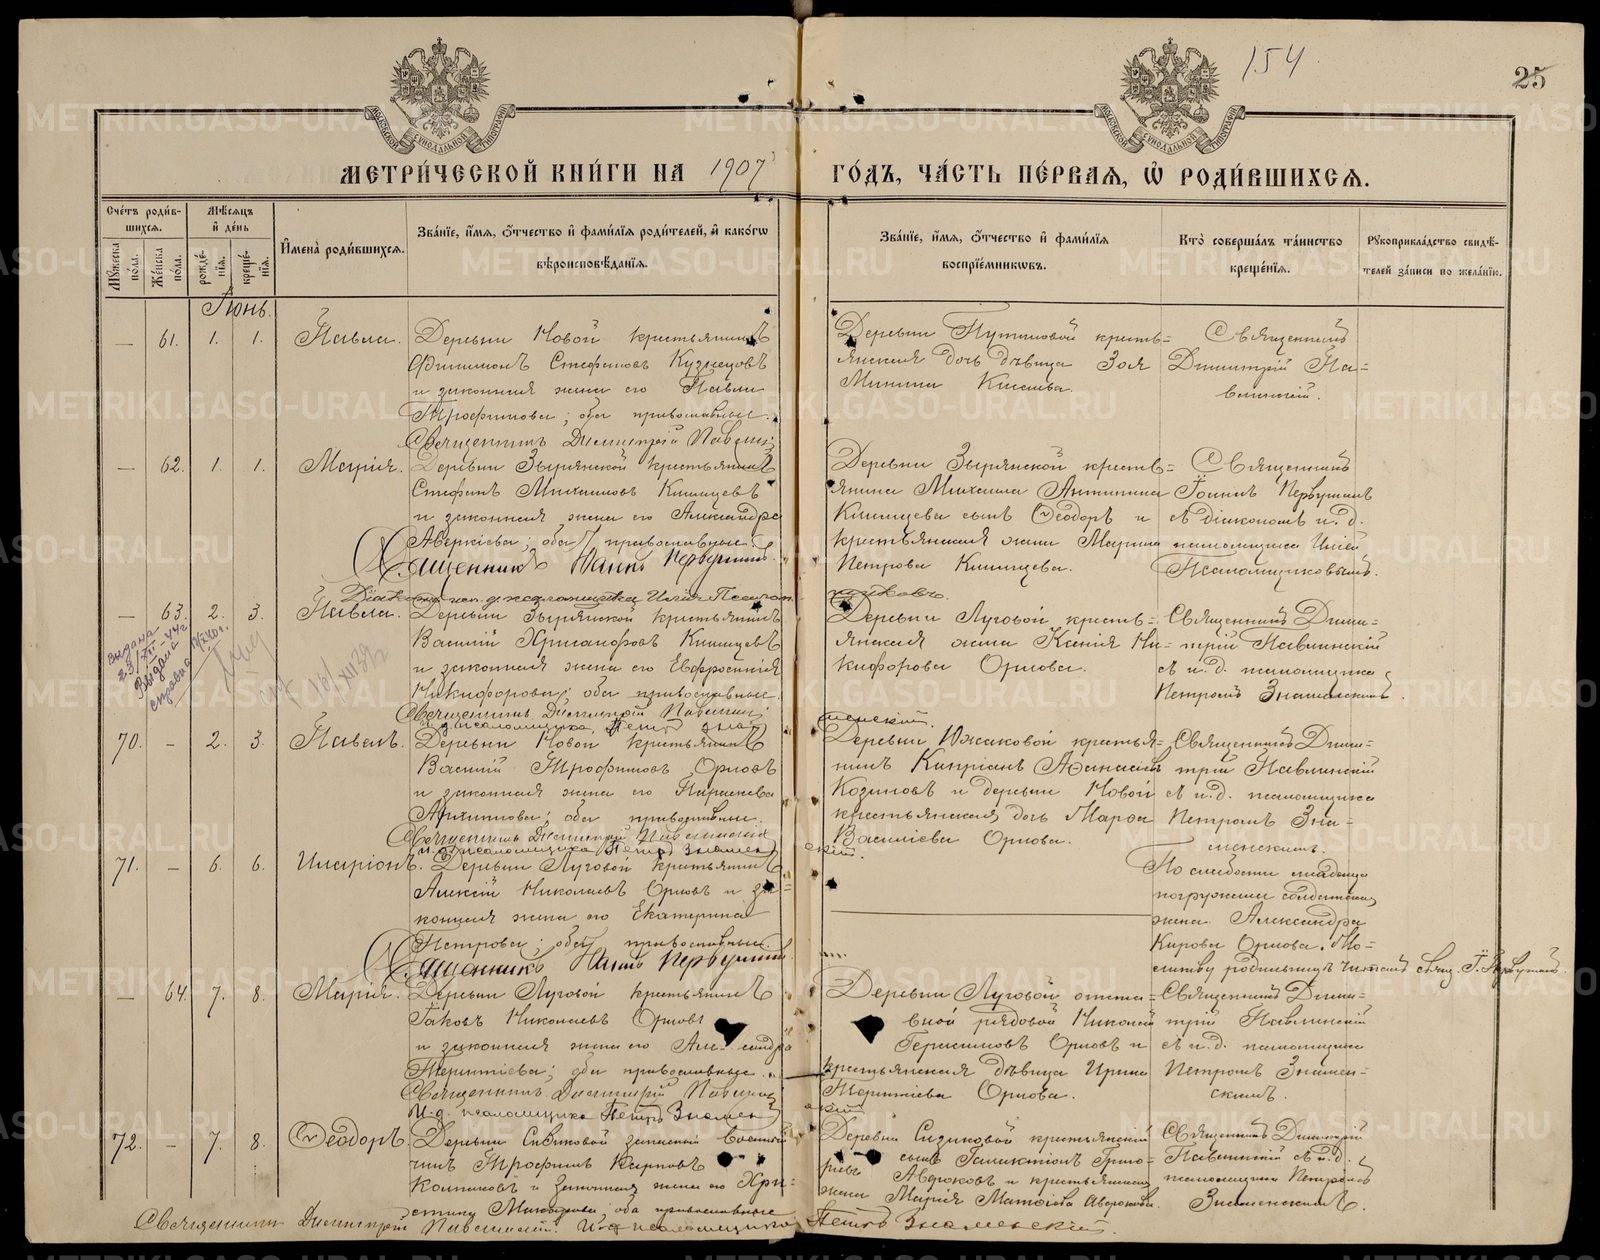 154
25
МЕТРИ́ЧЕСКОЙ КНИ́ГИ НА 1907 ГО́ДЪ, ЧА́СТЬ ПЕ́РВАѦ, Ѡ РОДИ́ВШИХСѦ.
Сче́тъ роди́в-
шихсѧ.
Мѣсѧцъ
и де́нь
Мꙋжеска по́ла.
Же́нска по́ла.
рожде́-
нїѧ.
креще́-
нїѧ.
И҆мена̀ роди́вшихсѧ.
Зва́нїе, и҆́мѧ, ѻ҆́тчество и҆ фами́лїѧ роди́телей, и҆ како́гѡ
вѣроисповѣ́данїѧ.
Зва́нїе, и҆́мѧ, ѻ҆́тчество и҆ фами́лїѧ
воспрїе́мникѡвъ.
Кто̀ соверша́лъ та́инство
креще́нїѧ.
Рꙋкоприкла́дство свидѣ́-
телей за́писи по жела́нїю.
Іюнь.
— 61. 1. 1. Павла.
Деревни Новой крестьянинъ
Филимонъ Стефановъ Кузнецовъ
и законная жена его Павла
Трофимова; оба православные.
Священникъ Димитрій
Деревни Путиловой кресть=
янская дочь дѣвица Зоя
Минина Киселева.
Священникъ
Димитрій Па=
влинскій.
— 62. 1. 1. Марія.
Деревни Зырянской крестьянинъ
Стефанъ Михаиловъ Клещевъ
и законная жена его Александра
Аверкіева; оба православные.
Священникъ Іоаннъ Первушинъ
Діаконъ на д. псаломщика Илія Псалом
щиковъ.
Деревни Зырянской кресть=
янина Михаила Антипина
Клещева сынъ Ѳеодоръ и
крестьянская жена Марина
Петрова Клещева.
Священникъ
Іоаннъ Первушинъ
съ діакономъ и. д.
псаломщика Иліею
Псаломщиковымъ.
— 63. 2. 3. Павла.
Деревни Зырянской крестьянинъ
Василій Хрисанфовъ Клещевъ
и законная жена его Евфросинія
Никифорова; оба православные.
Священникъ Димитрій Павлинскій
псаломщика Петръ Знаменскій.
Деревни Луговой кресть=
янская жена Ксенія Ни=
кифорова Орлова.
Священникъ Дими=
трій Павлинскій
съ и.д. псаломщика
Петромъ Знаменскимъ.
Выдана
справка
70. — 2. 3. Павелъ.
Деревни Новой крестьянинъ
Василій Трофимовъ Орловъ
и законная жена его Параскева
Архипова; оба православные.
Священникъ Димитрій Павлинскій
и д. псаломщика Петръ Знаменскій.
Деревни Южаковой крестья=
нинъ Кипріанъ Аѳанасіевъ
Козиновъ и деревни Новой
крестьянская дочь Марѳа
Василіева Орлова.
Священникъ Дими=
трій Павлинскій
съ и.д. псаломщика
Петромъ Зна=
менскимъ.
71. — 6. 6. Иларіонъ.
Деревни Луговой крестьянинъ
Алексій Николаевъ Орловъ и за=
конная жена его Екатерина
Петрова; оба православные.
Священникъ Іоаннъ Первушинъ
По слабости младенца
погружена солдатская
жена Александра
Кирова Орлова. Мо=
литву родильницѣ читалъ свящ. І. Первушинъ.
— 64. 7. 8. Марія.
Деревни Луговой крестьянинъ
Іаковъ Николаевъ Орловъ
и законная жена его Александра
Терентіева; оба православные.
Священникъ Димитрій Павлинскій
И.д. псаломщика Петръ Знаменскій
Деревни Луговой отста=
вной рядовой Николай
Герасимовъ Орловъ и
крестьянская дѣвица Ирина
Терентіева Орлова.
Священникъ Дими=
трій Павлинскій
съ и.д. псаломщика
Петромъ Знамен=
скимъ.
72. — 7. 8. Ѳеодоръ.
Деревни Сизиковой запасной военный
чинъ Трофимъ Карповъ
и законная жена его Хри=
стина оба православные
Деревни Сизиковой крестьянскій
сынъ Галактіонъ Григо=
рьевъ и крестьянская
жена Марія
Священникъ Димитрій
Павлинскій съ и.д.
псаломщика Петромъ
Знаменскимъ.
Священникъ Димитрій Павлинскій. И.д. псаломщика Петръ Знаменскій.
METRIKI.GASO-URAL.RU